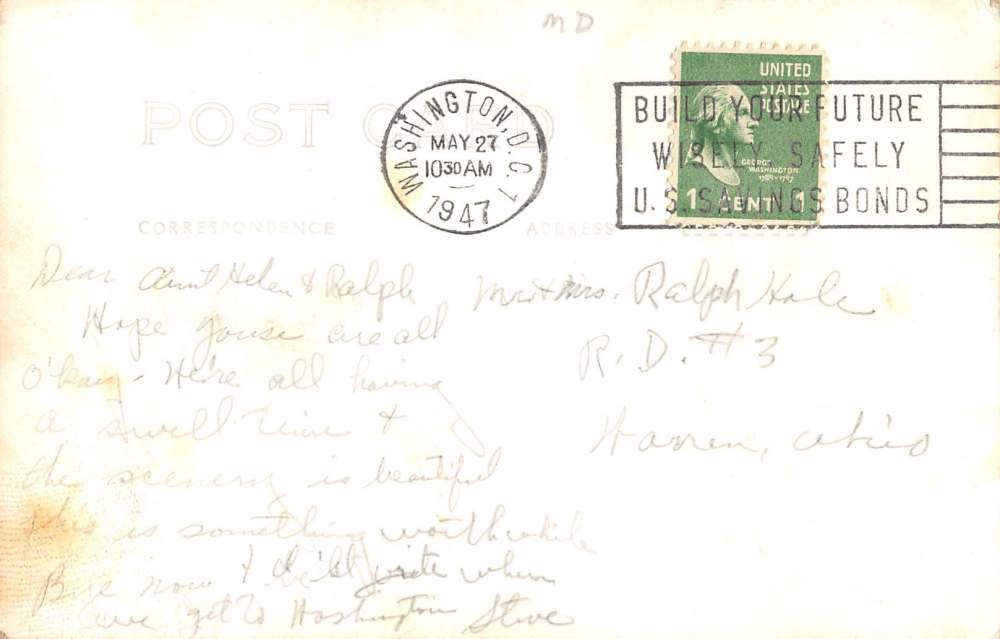 MD
POST CARD
WASHINGTON, D.C. 1
MAY 27
10 30 AM
1947
UNITED
STATES
POSTAGE
GEORGE
WASHINGTON
1789-1797
1 CENT 1
BUILD YOUR FUTURE
WISELY SAFELY
U.S. SAVINGS BONDS
CORRESPONDENCE
ADDRESS
Dear Aunt Helen & Ralph
Hope youse are all
O'kay - We're all having
a swell time &
the scenery is beautiful
this is something worthwhile
Bye now & write when
we get to Washington Steve
Mr & Mrs. Ralph Hale
R.D. #3
Warren, Ohio